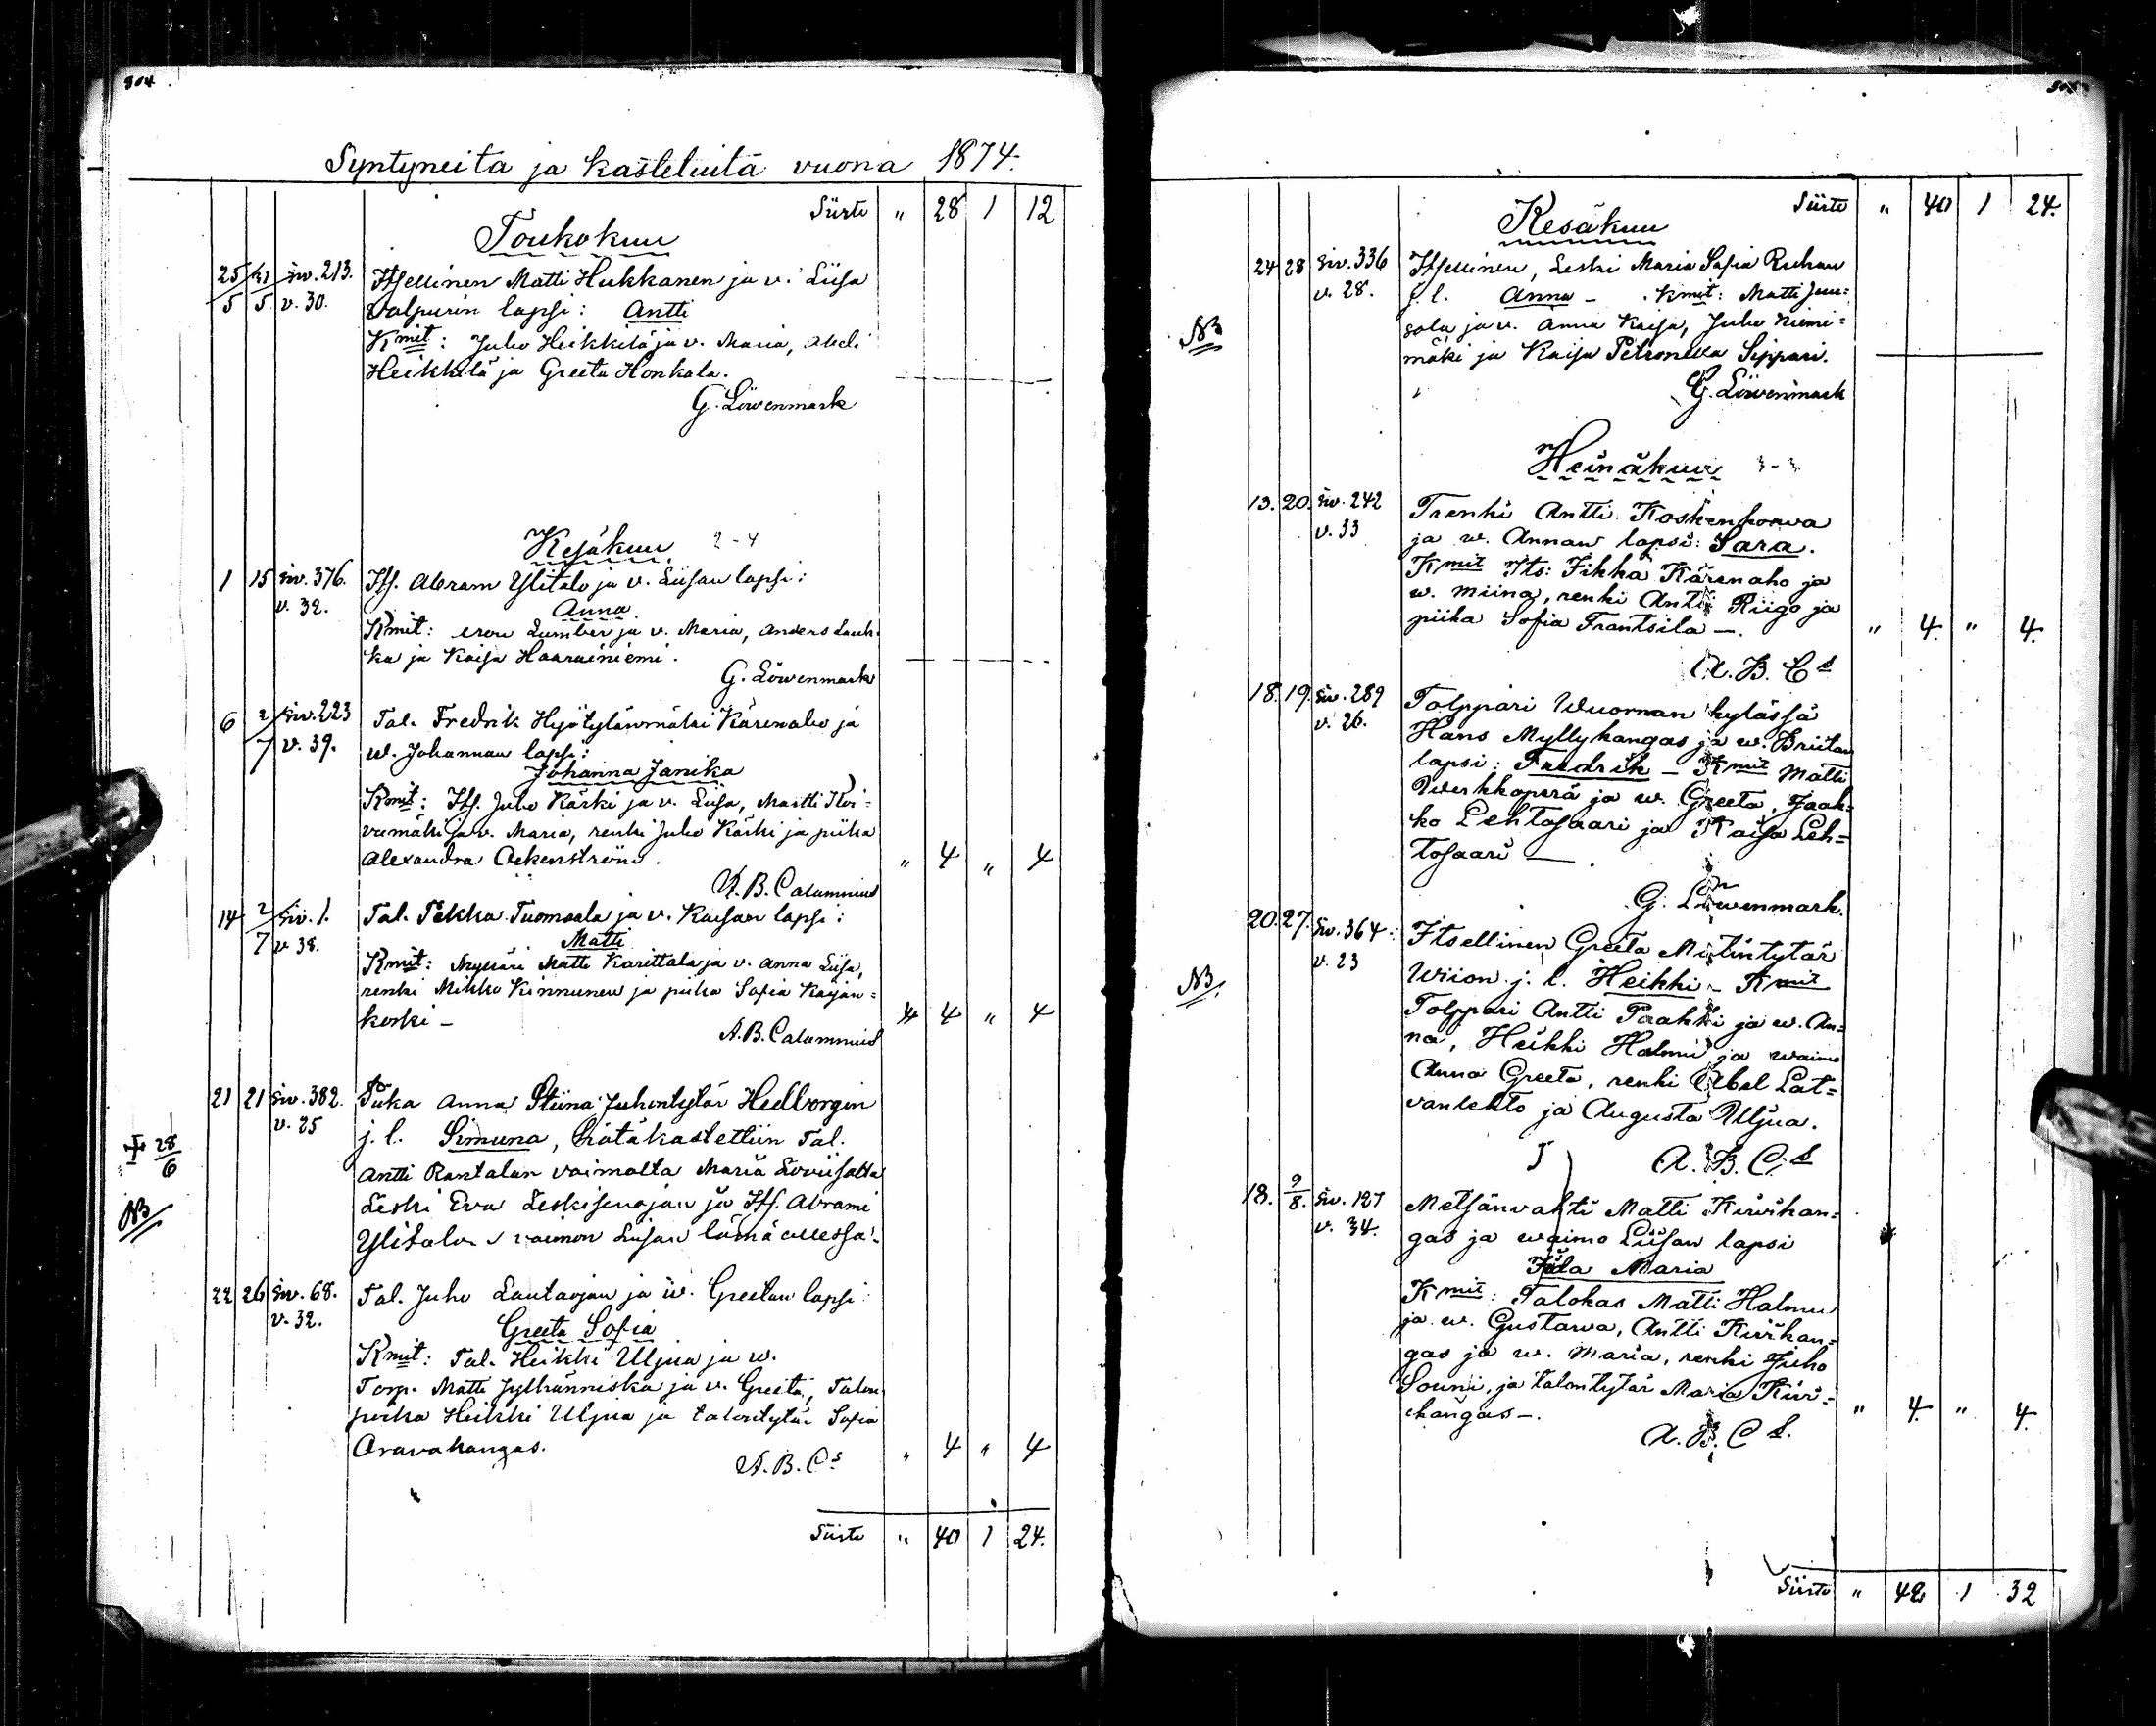 304
Syntyneitä ja kasteluita vuona 1874.
Siirto " 28 1 12
Toukokuu
25/5 31/5 siv. 213. v. 30. Itsellinen Matti Hukkanen ja v. Liisa
Valpurin lapsi: Antti
Kmit: Juho Heikkilä ja v. Maria, Abeli
Heikkilä ja Greeta Honkala.
G. Löwenmark
Kesäkuu 2-4
1 15 siv. 376. v. 32. Its. Abram Ylitalo ja v. Liisan lapsi:
Anna
Kmit: Lumber ja v. Maria, Anders Lauk-
ka ja Kaisa Haaraniemi.
G. Löwenmark
6 2/7 siv. 223 v. 39. Tal. Fredrik Hyötylänmäki Kärenaho ja
w. Johannan lapsi:
Johanna Janika
Kmit: Its. Juho Kärki ja v. Liisa, Martti Koi-
vumäki ja v. Maria, renki Juho Kärki ja piika
Alexandra Ockenström. " 4 " 4
A. B. Calamnius
14 2/7 siv. 1. v 38. Tal. Pekka Tuomaala ja v. Kaisan lapsi:
Matti
Kmit: Mylläri Matti Karittala ja v. Anna Liisa,
renki Mikko Kinnunen ja piika Sofia Karjan-
koski - 4 " 4
A. B. Calamnius
21 21 siv. 382. v. 25 Piika Anna Stiina Juhontytär Hedborgin
j. l. Simuna, Hätäkastettiin Tal.
+ 28/6
Antti Rantalan vaimolta Maria Loviisalta
NB
Leski Eva Leskisenojan ja Its. Abrami
Ylitalon vaimon Liisan läsnä ollessa.
22 26 siv. 68. v. 32. Tal. Juho Lautaojan ja w. Greetan lapsi:
Greeta Sofia
Kmit: Tal. Heikki Uljua ja w.
Torp. Matti Jylhänniska ja v. Greeta, Talon
poika Heikki Uljua ja talontytär Sofia
Aravakangas. " 4 " 4
A. B. Cs
Siirto " 40 1 24.
305
Siirto " 40 1 24.
Kesäkuu
24 28 siv. 336 v. 28. Itsellinen, Leski Maria Sofia
j. l. Anna - Kmit: Matti Juu-
NB
sola ja v. Anna Kaisa, Juho Niemi-
mäki ja Kaisa Petronella Sippari.
G. Löwenmark
Heinäkuu 3-3
13. 20. siv. 242 v. 33 Trenki Antti Koskenkorva
ja w. Annan lapsi: Sara.
Kmit Its: Fikka Kärenaho ja
w. Miina, renki Antti Riigo ja
piika Sofia Frantsila -. " 4. " 4.
A. B. Cs
18. 19. siv. 289 v. 26. Tolppari Wuornan kylässä
Hans Myllykangas ja w. Briitan
lapsi: Fredrik - Kmit Matti
Werkkoperä ja w. Greeta, Jaak-
ko Lehtosaari ja Kaisa Leh-
tosaari -.
G. Löwenmark.
20. 27. siv. 364: v. 23 Itsellinen Greeta Matintytär
NB
Wiion j. l. Heikki - Kmit
Tolppari Antti Paakki ja w. An-
na, Heikki Halmu ja waimo
Anna Greeta, renki Abel Lat-
vanlehto ja Augusta Uljua.
A. B. Cs
18. 9/8. siv. 127 v. 34. Metsänvahti Matti Kiviskan-
gas ja waimo Liisan lapsi
Iida Maria
Kmit: Talokas Matti Halmu
ja w. Gustawa, Antti Kiviskan-
gas ja w. Maria, renki Juho
Souni, ja talontytär Maria Kivis-
kangas -. " 4. " 4.
A. B. Cs.
Siirto " 48 1 32